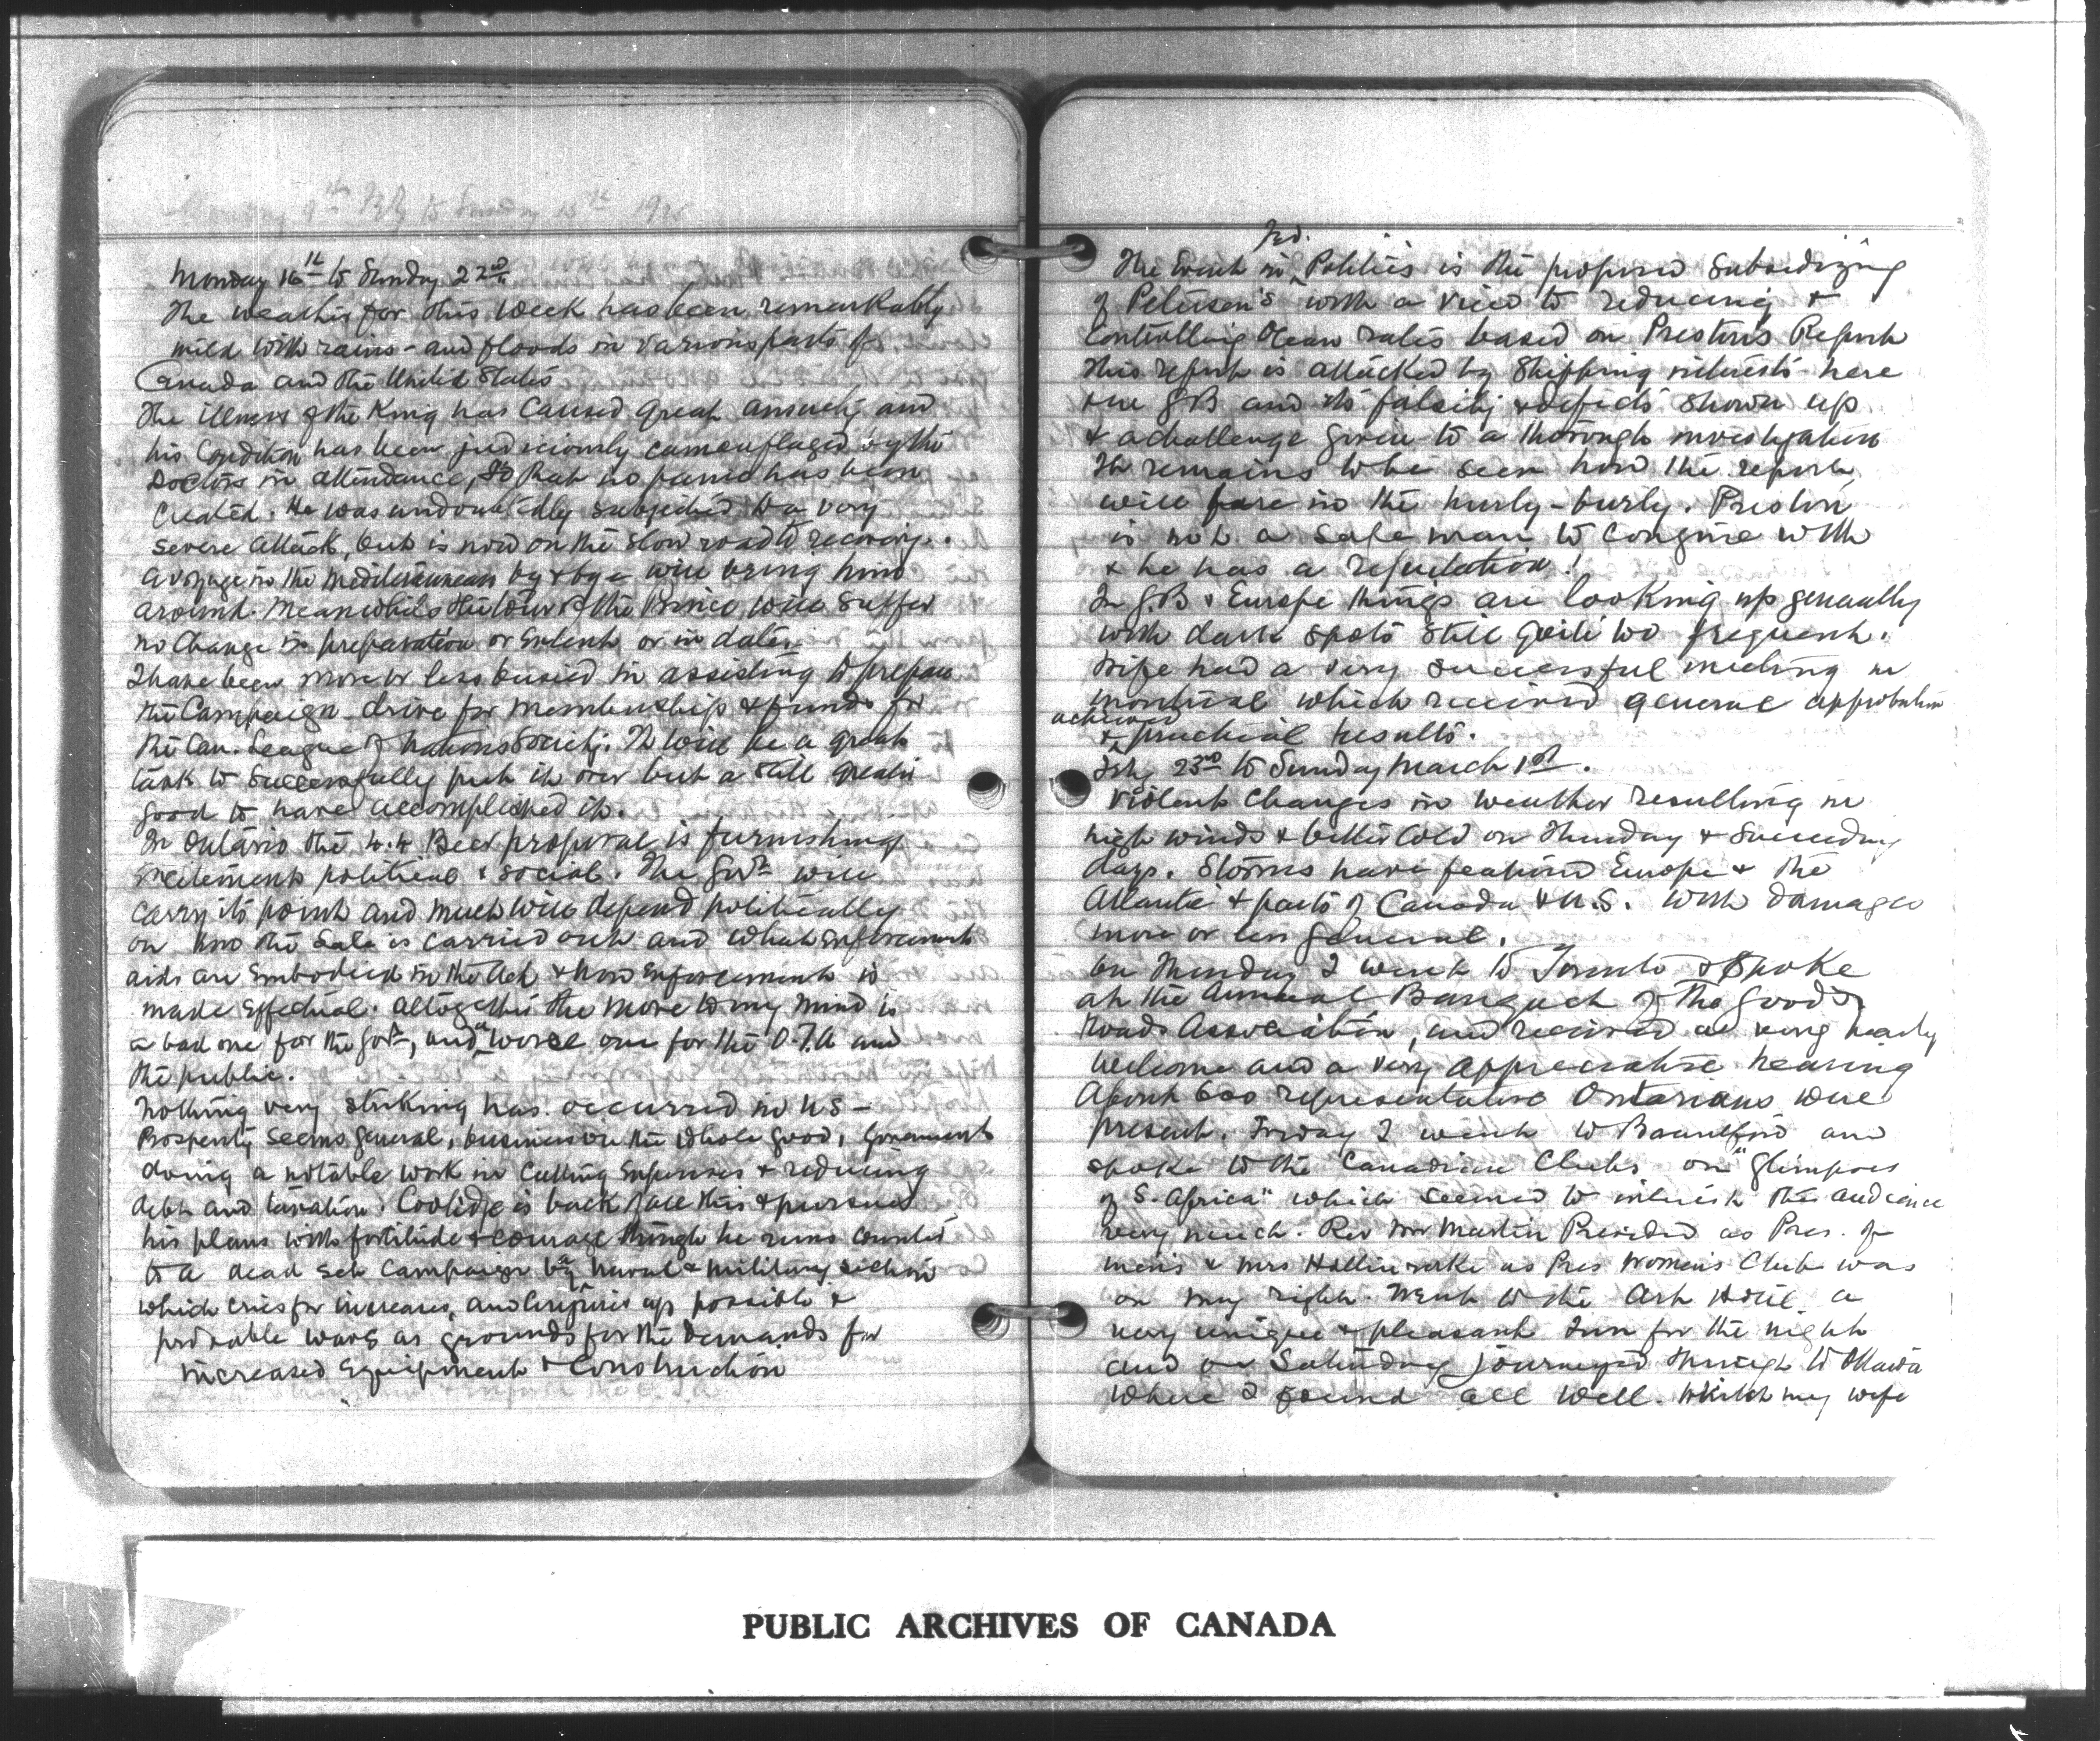 Monday 9th Feby to Sunday 15th 1925
Monday 16th to Sunday 22nd
The weather for this week has been remarkably
mild with rains - and floods in various parts of
Canada and the United States
The illness of the King has caused great anxiety and
his condition has been judiciously camouflaged by the
Doctors in attendance, so that no panic has been
created. He was undoubtedly subjected to a very
severe attack, but is now on the slow road to recovery.
A voyage in the Mediterranean by & bye will bring him
around. Meanwhile the tour of the Prince will suffer
no change in preparation or extent or in date.
I have been more or less busied in assisting to prepare
the Campaign drive for membership & funds for
the Can. League of Nations Society. It will be a great
task to successfully put it over but a still greater
good to have accomplished it.
In Ontario the 4.4 Beer proposal is furnishing
excitement political & social. The Govt will
carry its point and much will depend politically
on how the Sale is carried out and what enforcement
aids are embodied in the Act & how enforcement is
made effectual. Altogether the move to my mind is
a bad one for the Govt, and a worse one for the O.T.A and
the public.
Nothing very striking has occurred in US -
Prosperity seems general, business on the whole good, Government
doing a notable work in cutting expenses & reducing
debt and taxation. Coolidge is back of all this & pursues
his plans with fortitude & courage though he runs counter
to a dead set campaign by a Naval & military section
which cries for increases, and conjures up possible &
probable wars as grounds for the demands for
increased equipment & construction
The event in Fed. Politics is the proposed subsidizing
of Petersen's with a view to reducing &
controlling Ocean rates based on Preston's Report
This report is attacked by Shipping interests here
& in GB and its falsity & defects shown up
& a challenge given to a thorough investigation
It remains to be seen how the report
will fare in the hurly-burly. Preston
is not a safe man to conjure with
& he has a reputation!
In G.B & Europe things are looking up generally
with dark spots still quite too frequent.
Wife had a very successful meeting in
Montreal which received general approbation
& achieved practical results.
Feby 23rd to Sunday March 1st.
Violent changes in weather resulting in
high winds & bitter cold on Thursday & succeeding
days. Storms have featured Europe & the
Atlantic & parts of Canada & U.S. with damages
more or less general.
On Thursday I went to Toronto & spoke
at the Annual Banquet of the Good
Roads Association, and received a very hearty
welcome and a very appreciative hearing
About 600 representative Ontarians were
present. Friday I went to Brantford and
spoke to the Canadian Clubs on "Glimpses
of S. Africa" which seemed to interest the audience
very much. Rev Mr Martin Presided as Pres. of
men's & Mrs Hollinrake as Pres Women's Club was
on my right. Went to the Ark Hotel a
very unique & pleasant Inn for the night
and on Saturday journeyed through to Ottawa
where I found all well. Whilst my wife
PUBLIC ARCHIVES OF CANADA